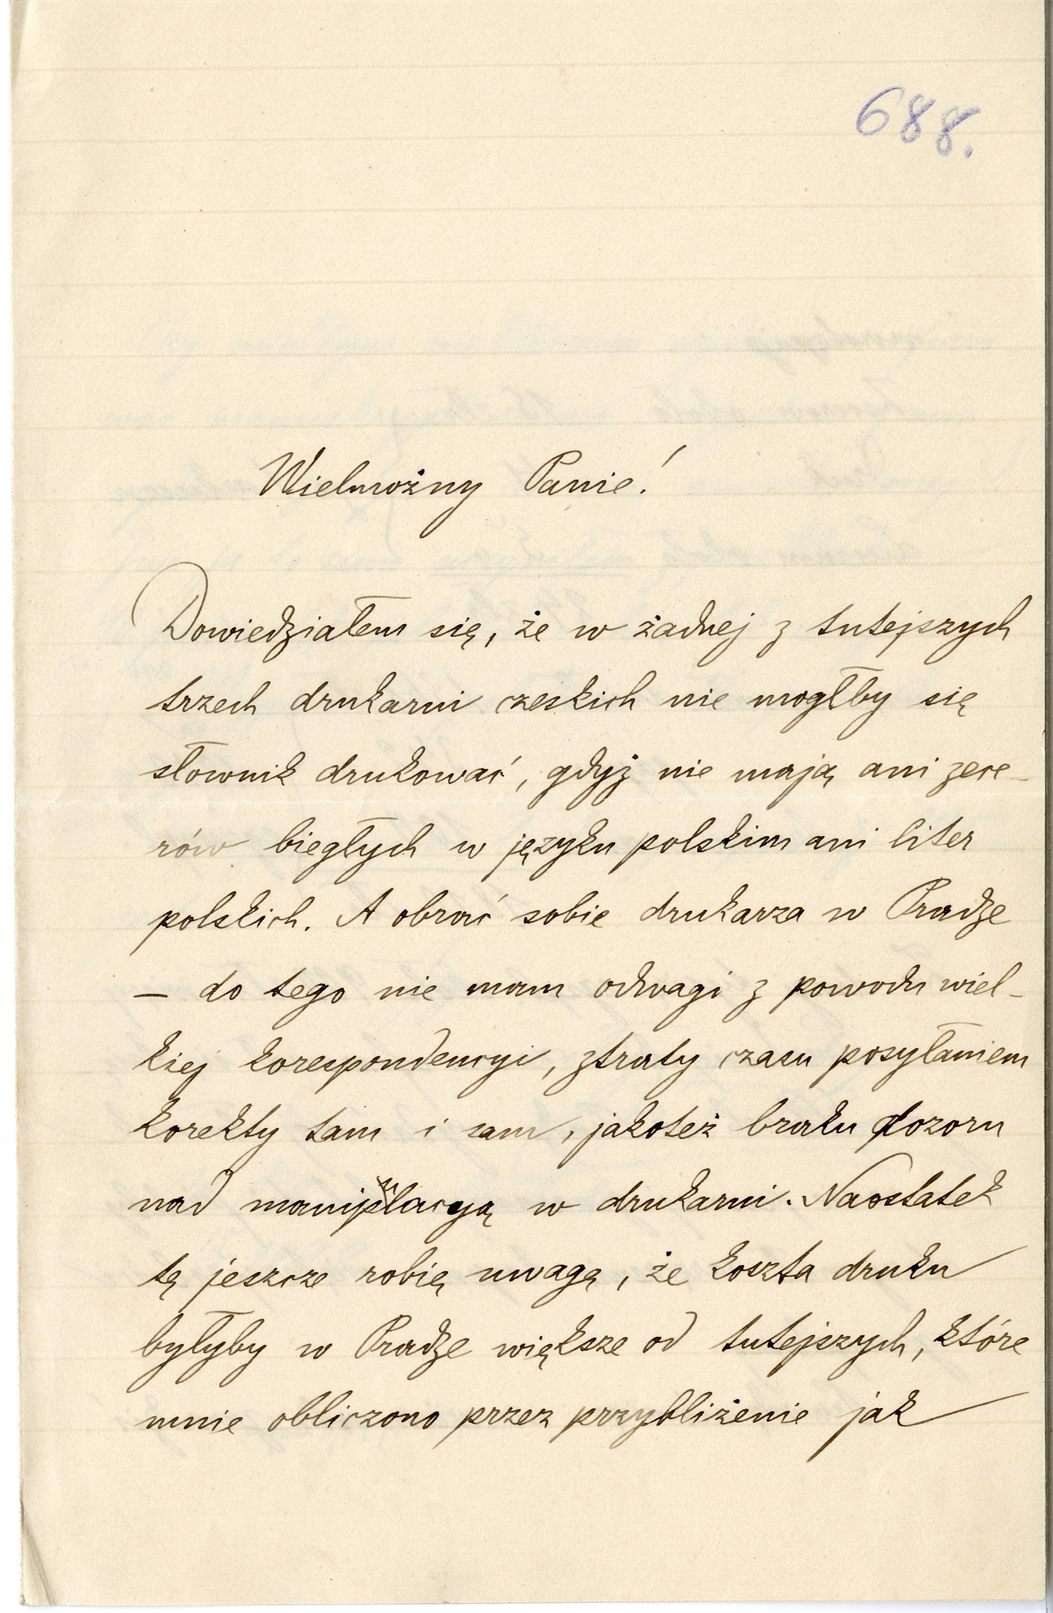 688.
Wielmożny Panie!
Dowiedziałem się, że w żadnej z tutejszych
trzech drukarni czeskich nie mogłby się
słownik drukować, gdyż nie mają ani zece-
rów biegłych w języku polskim ani liter
polskich. A obrać sobie drukarza w Pradze
– do tego nie mam odwagi z powodu wiel-
kiej korespondencyi, ztraty czasu posyłaniem
korekty tam i sam, jakoteż braku dozoru
nad manipulacyą w drukarni. Naostatek
tę jeszcze robię uwagę, że koszta druku
byłyby w Pradze większe od tutejszych, które
mnie obliczono przez przybliżenie jak